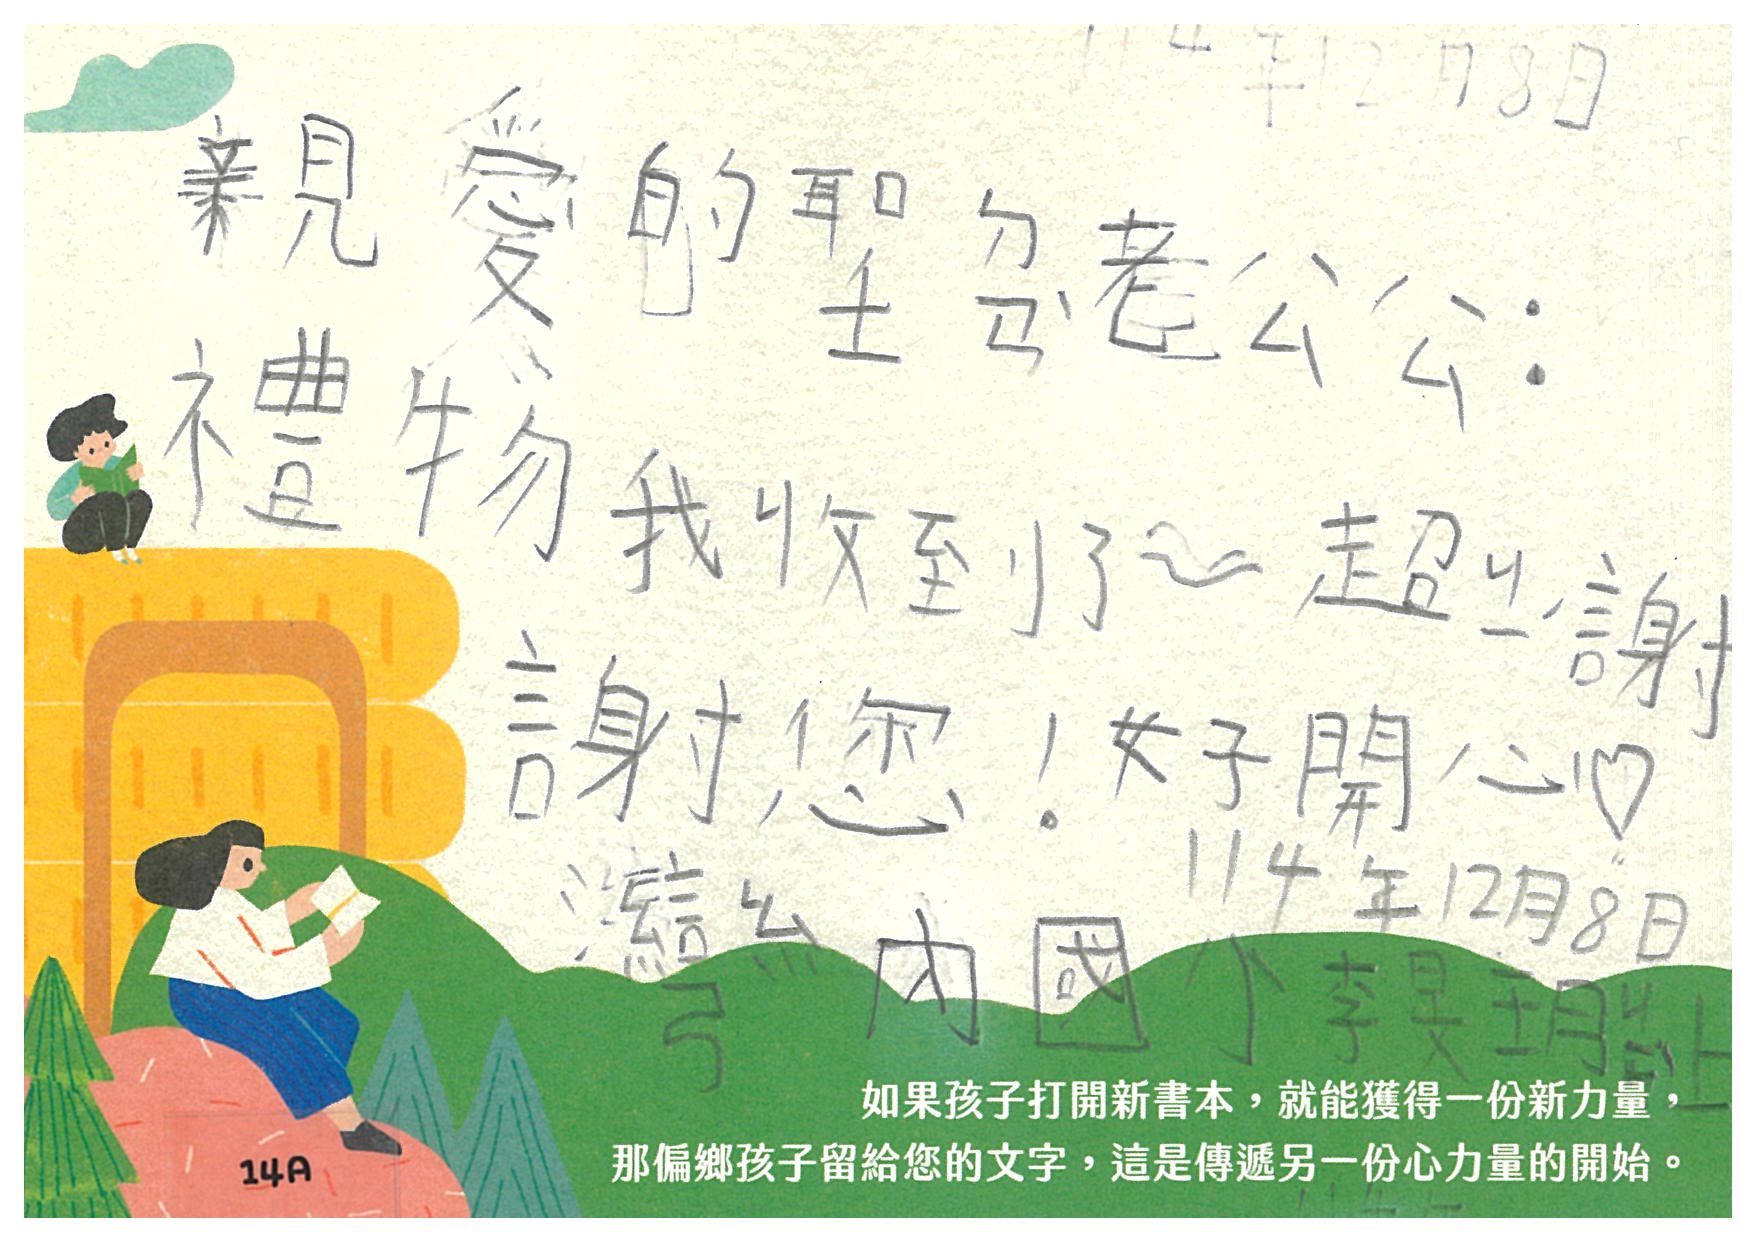 114年12月8日
親愛的聖ㄉㄢˋ老公公：
禮物我收到了~超ㄐㄧˊ謝
謝您！好開心♡
114年12月8日
內國小 李旻玥 上
如果孩子打開新書本，就能獲得一份新力量，
那偏鄉孩子留給您的文字，這是傳遞另一份心力量的開始。
14A